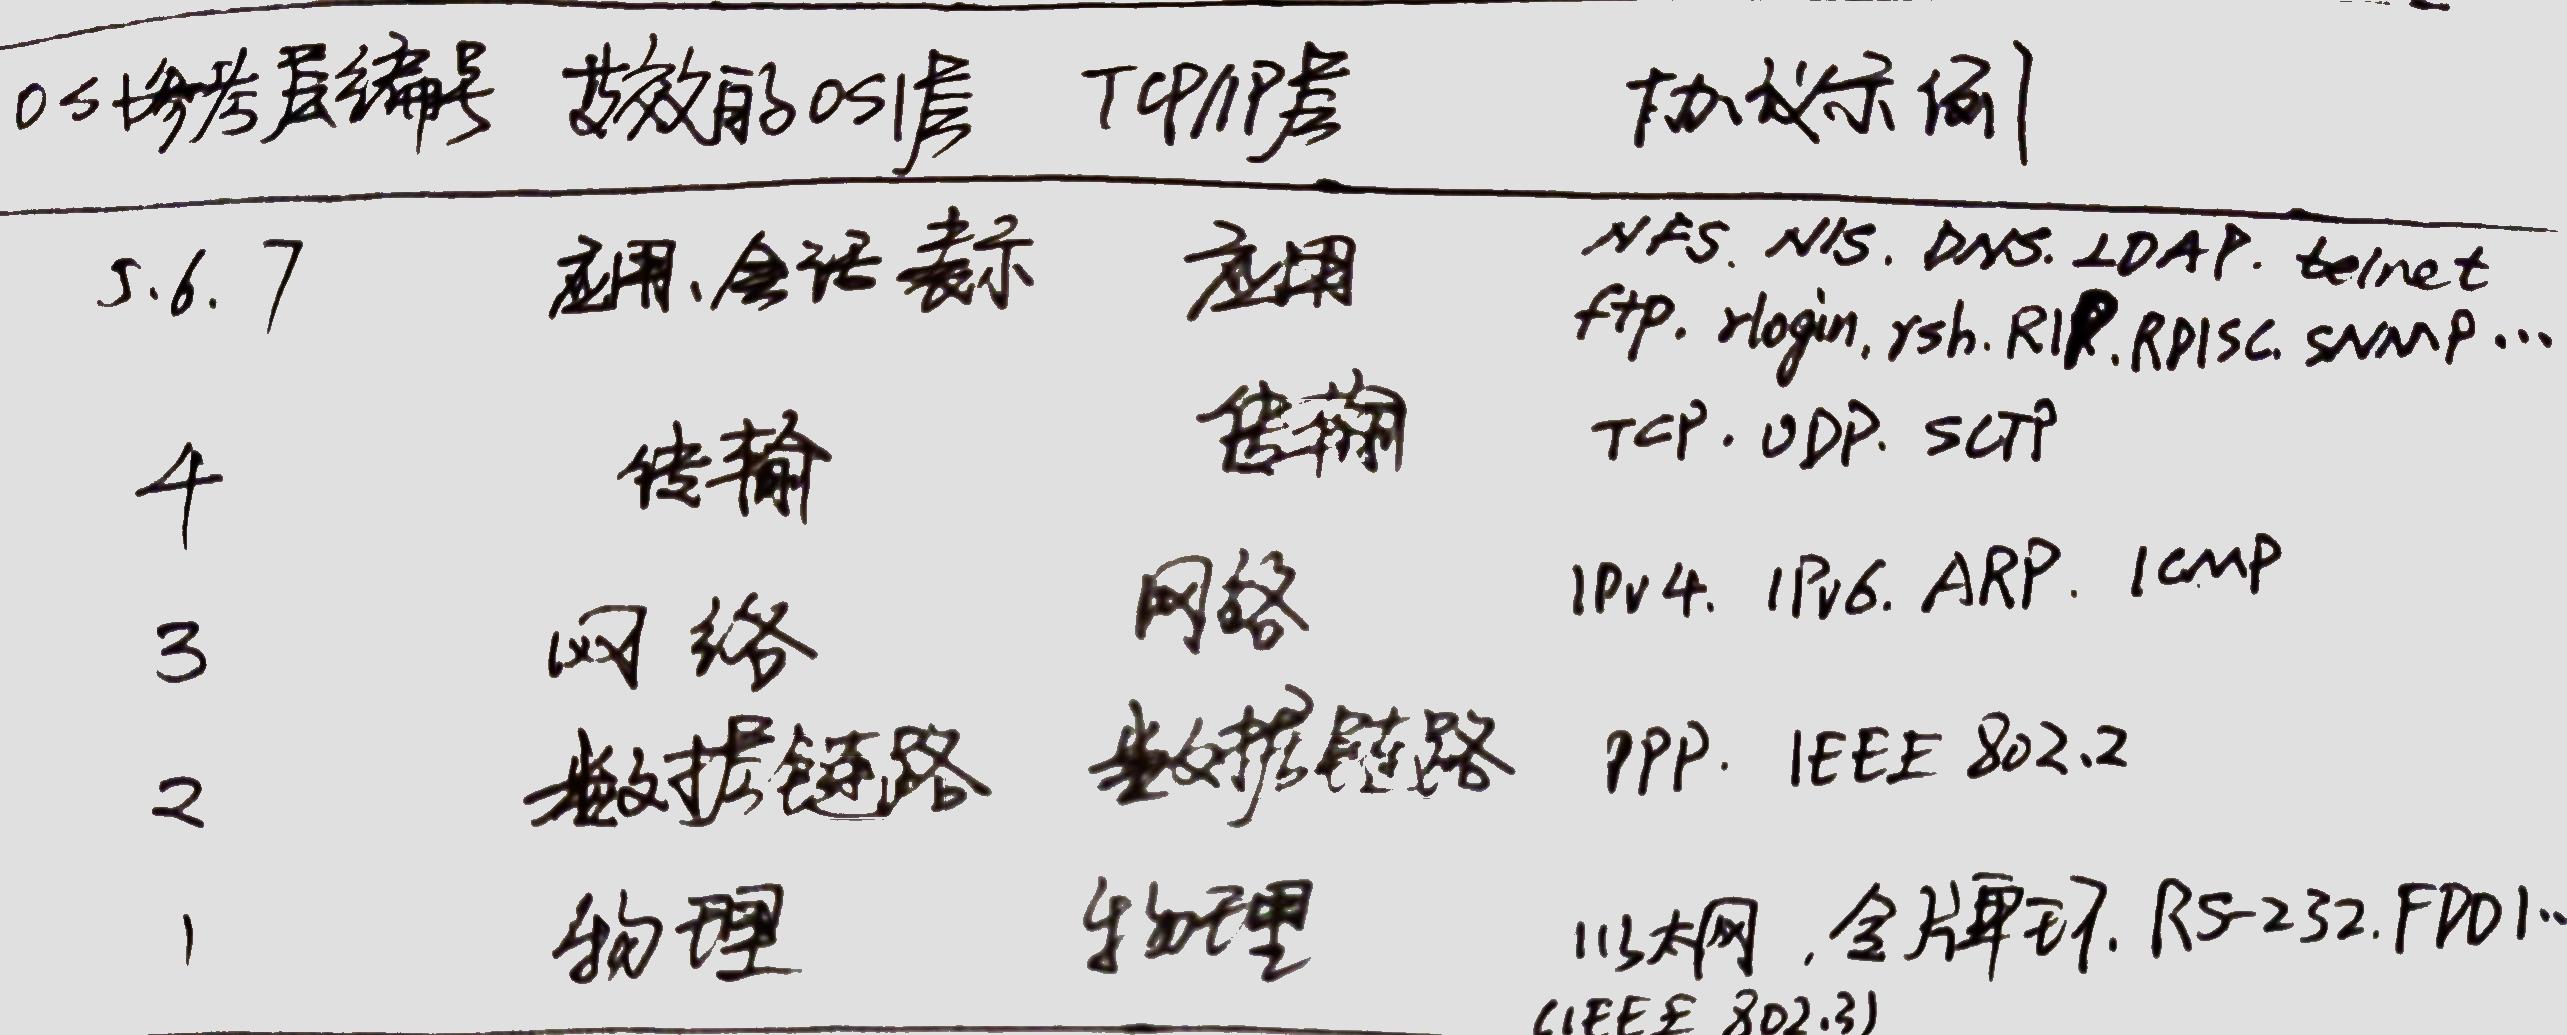 OSI参考层编号 等效的OSI层 TCP/IP层 协议示例
5.6.7 应用、会话 表示 应用 NFS. NIS. DNS. LDAP. telnet
ftp. rlogin. rsh. RIP. RDISC. SNMP...
4 传输 传输 TCP. UDP. SCTP
3 网络 网络 IPv4. IPv6. ARP. ICMP
2 数据链路 数据链路 PPP. IEEE 802.2
1 物理 物理 以太网, 令牌环. RS-232. FDDI...
(IEEE 802.3)